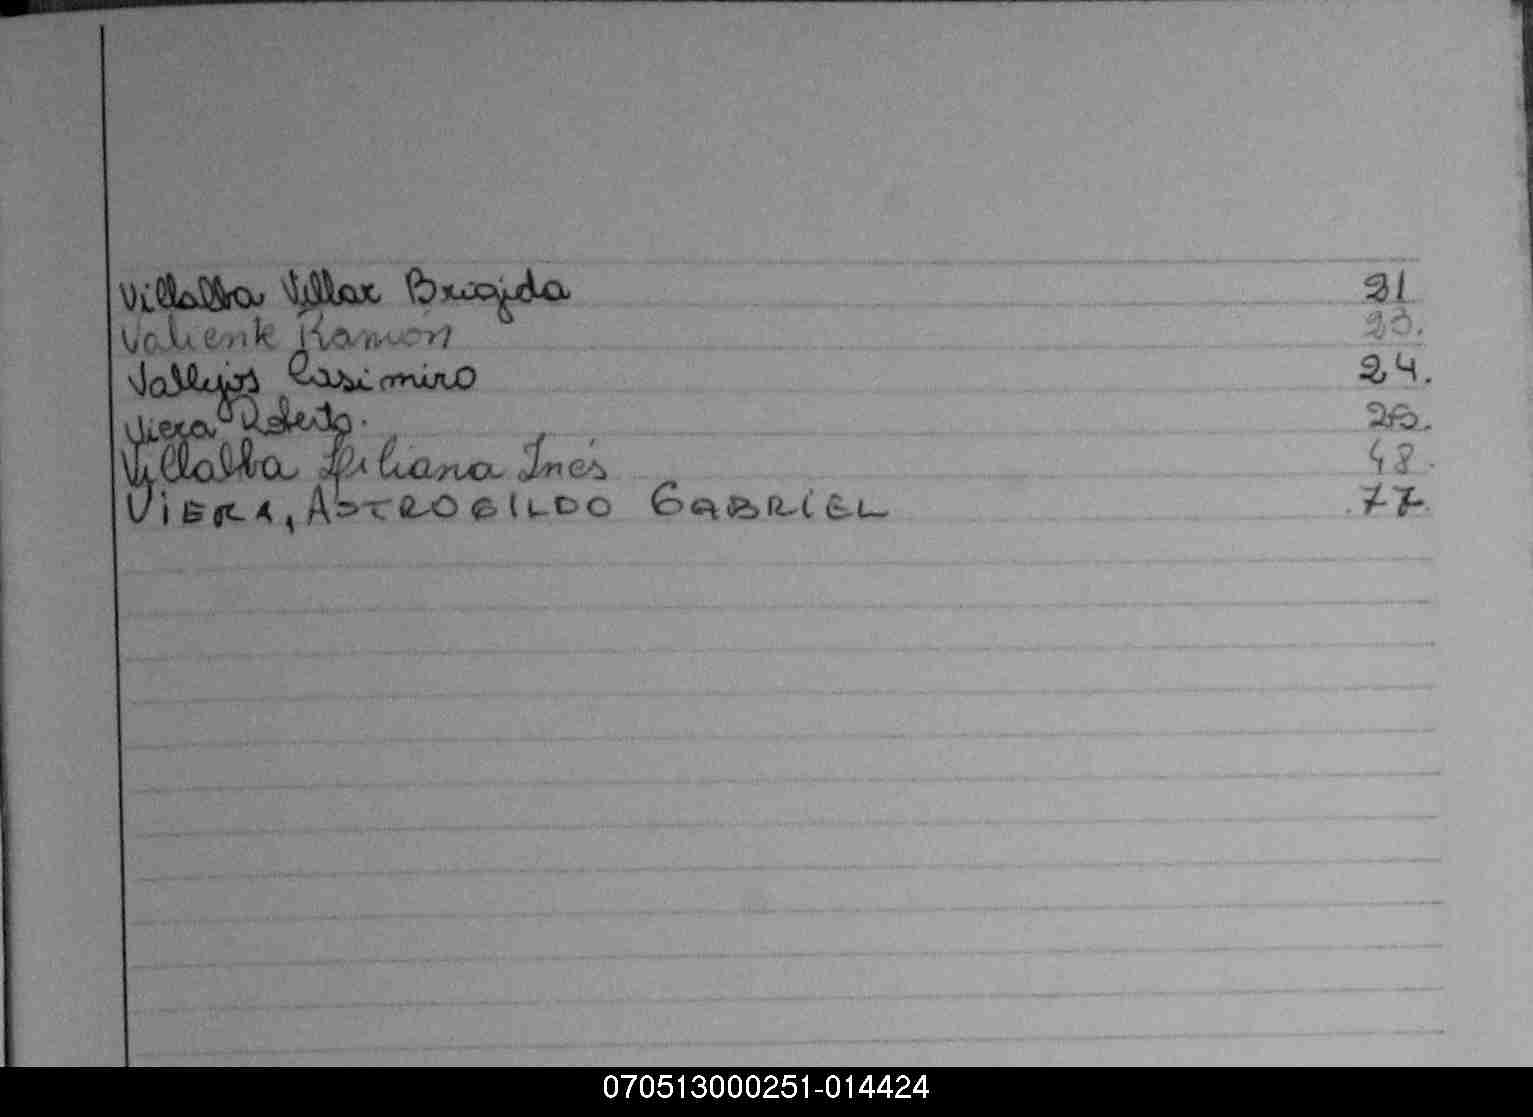 Villalba Villar Brigida 21
Valiente Ramón 23.
Vallejos Casimiro 24.
Viera Roberto.
Villalba Liliana Inés 48.
VIERA, ASTROGILDO GABRIEL 77.
070513000251-014424